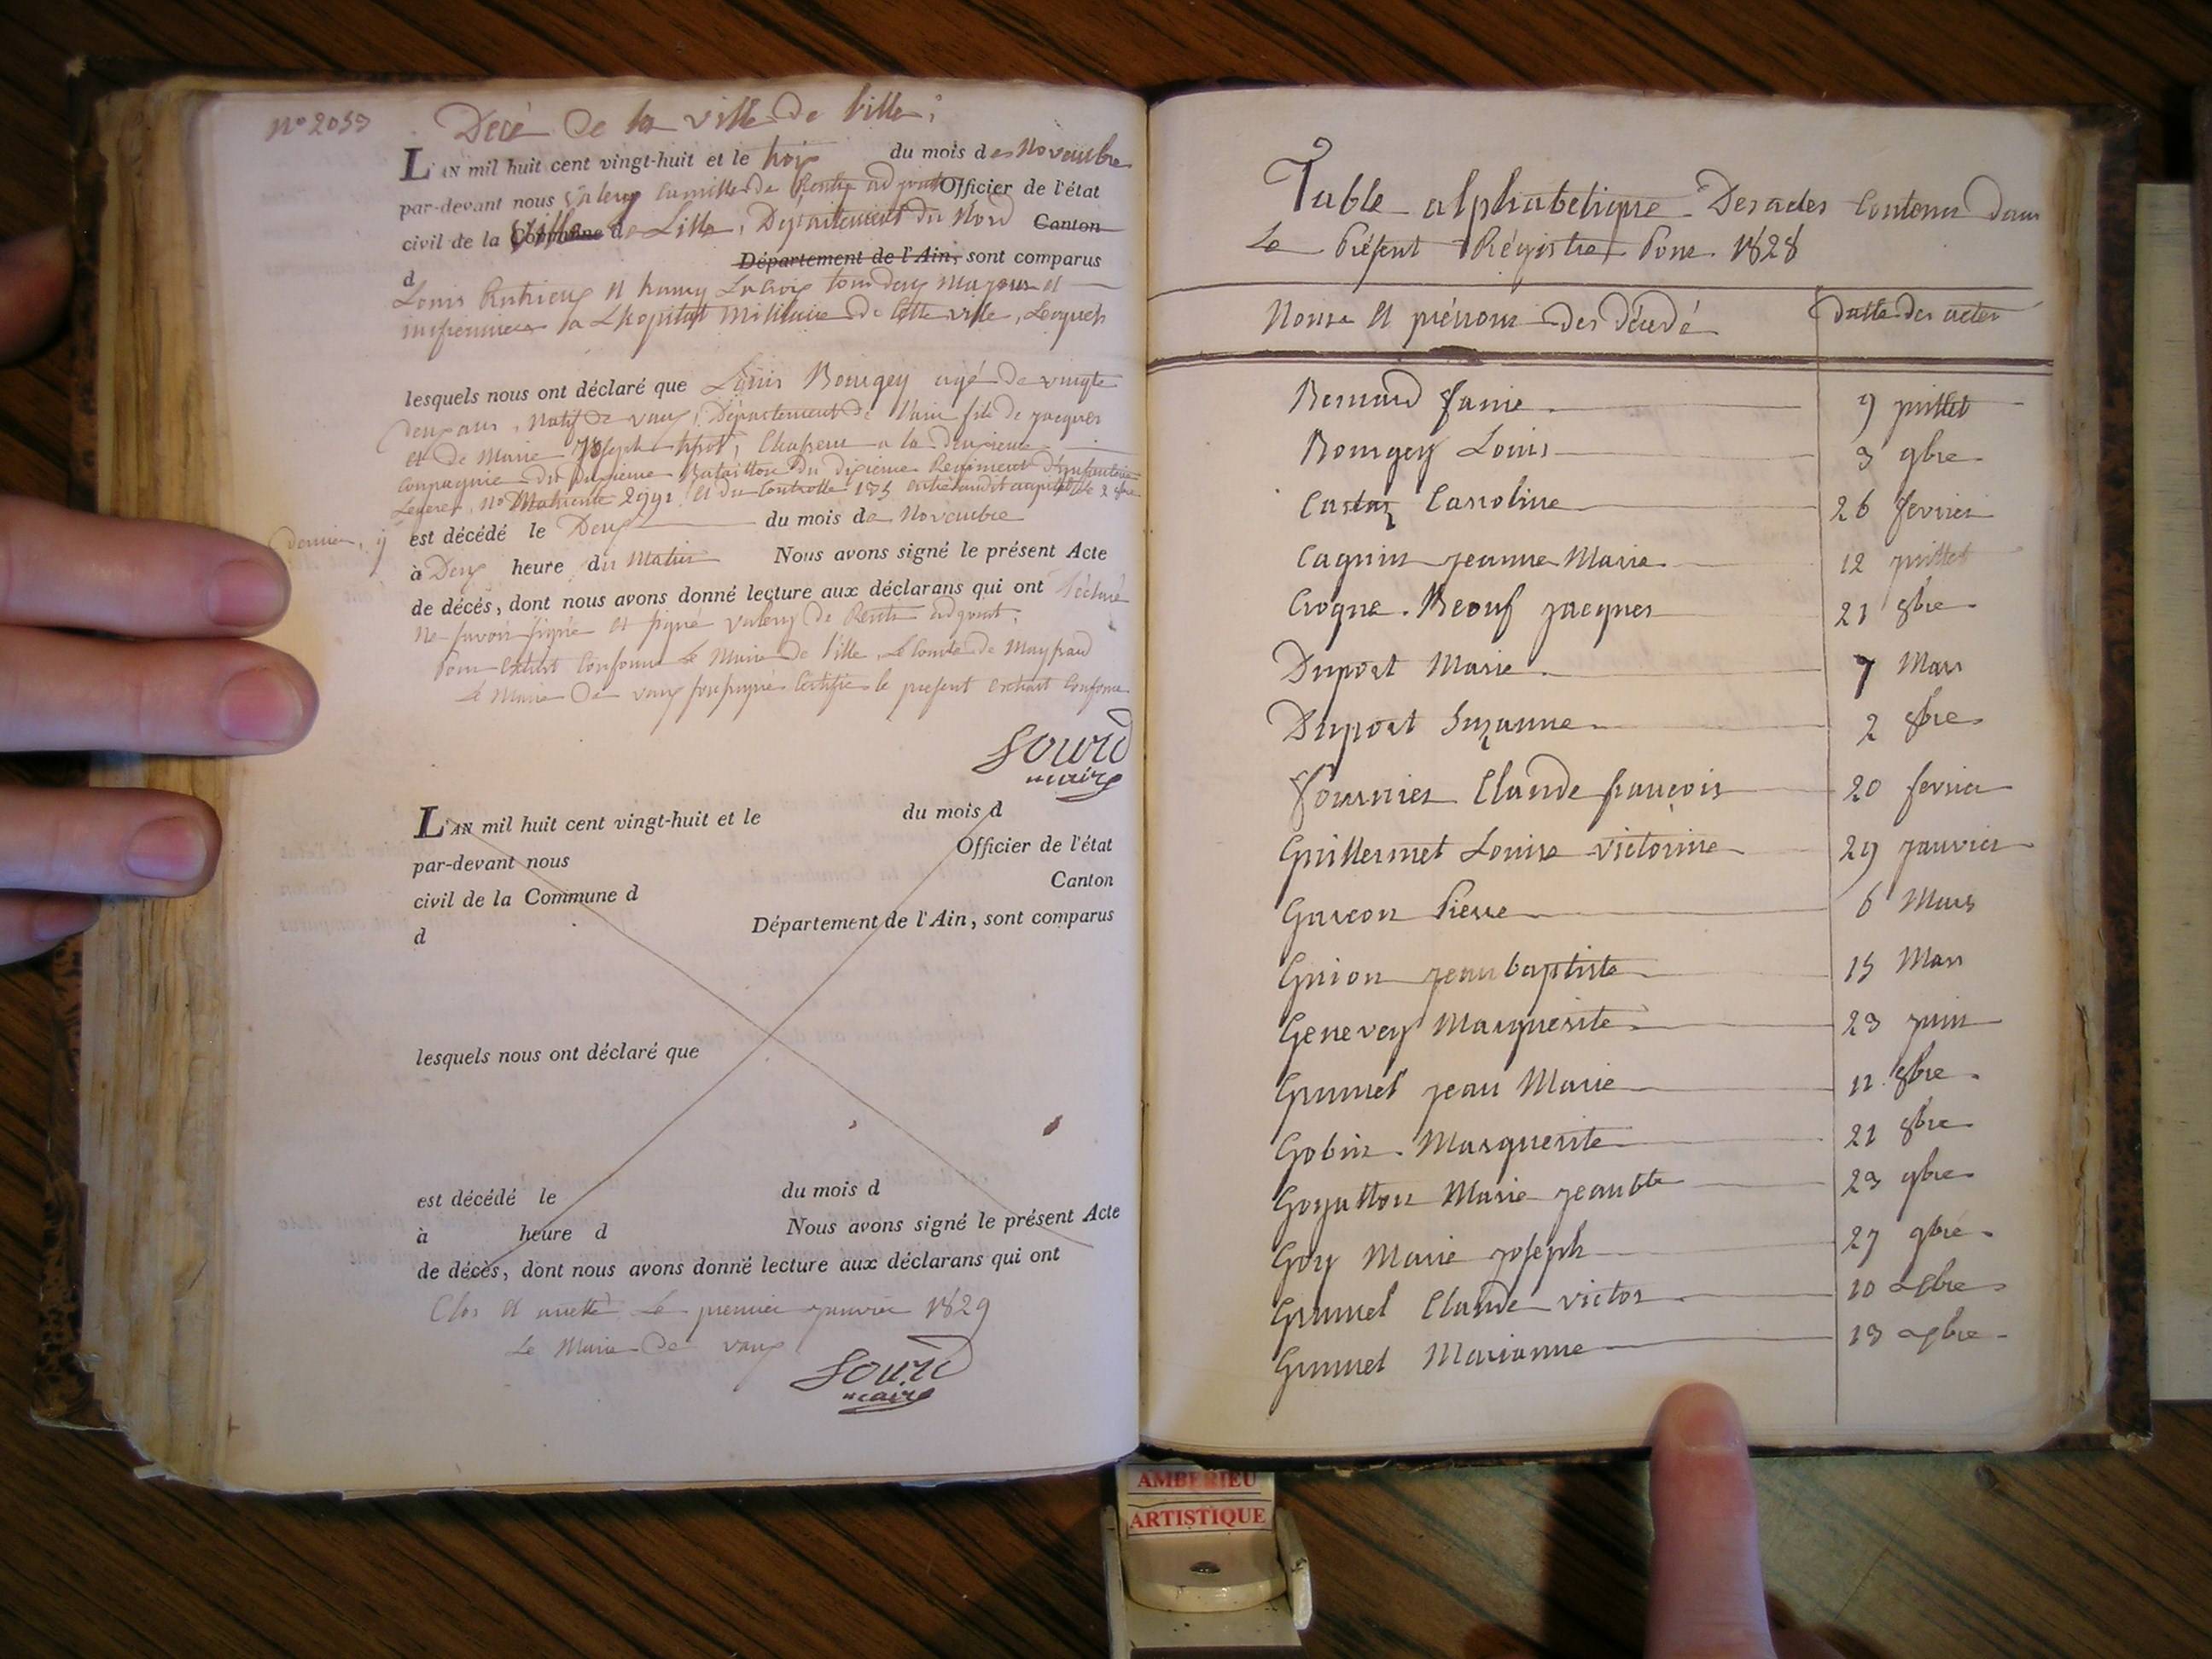 N° 2053
Decè de la ville de Lille;
L'AN mil huit cent vingt-huit et le trois du mois des Novembre
par-devant nous Valery Camille de Rentz adjoint Officier de l'état
civil de la Ville de Lille, Département du Nord Canton
d Département de l'Ain, sont comparus
Louis et Lacroix tous deux Majeurs et
infirmiers a L'hopital Militaire de Cette ville, Lesquels
lesquels nous ont déclaré que Louis Bourgey agé de vingte
deux ans, Natif de vaux, Département de l'Ain fils de jacques
et de Marie joseph , Chasseur a la deuxieme
compagnie du Bataillon du dixieme Regiment d'infanterie
Legere, N° Matricule 2991 et du Controlle 175 entré audit le 2
dernier, y
est décédé le Deux du mois de Novembre
à Deux heure du Matin Nous avons signé le présent Acte
de décès, dont nous avons donné lecture aux déclarans qui ont déclaré
Ne savoir signé et signé valery de Rentz adjoint;
Pour Extrait Conforme Le Maire de Lille, Le Comte de
Le Maire De vaux soussigné Certifie le present extrait Conforme
Sourd
maire
L'AN mil huit cent vingt-huit et le du mois d
par-devant nous Officier de l'état
civil de la Commune d Canton
d Département de l'Ain, sont comparus
lesquels nous ont déclaré que
est décédé le du mois d
à heure d Nous avons signé le présent Acte
de décès, dont nous avons donné lecture aux déclarans qui ont
Clos et arretté Le premier janvier 1829
Le Maire De vaux
Sourd
maire
Table alphabetique Des actes Contenus dans
Le Présent Régistre Pour 1828
Noms et prénoms des décédé datte des actes
Bernard fanie 9 juillet
Bourgey Louis 3 9bre
Castaz Carroline 26 fevrier
Cagnin jeanne Marie 12 juillet
Croque Beouf jacques 21 8bre
Duport Marie 7 Mars
Duport Suzanne 2 8bre
fournier Claude françois 20 fevrier
Guillermet Louise victorine 29 janvier
Garcon Pierre 6 Mars
Guion jean baptiste 15 Mars
Genevey Marguerite 23 juin
Grumel jean Marie 12 8bre
Gobin Marguerite 21 8bre
Goyatton Marie jean bte 23 9bre
Goy Marie joseph 27 9bre
Grumel Claude victor 10 Xbre
Grumel Marianne 13 Xbre
AMBERIEU
ARTISTIQUE